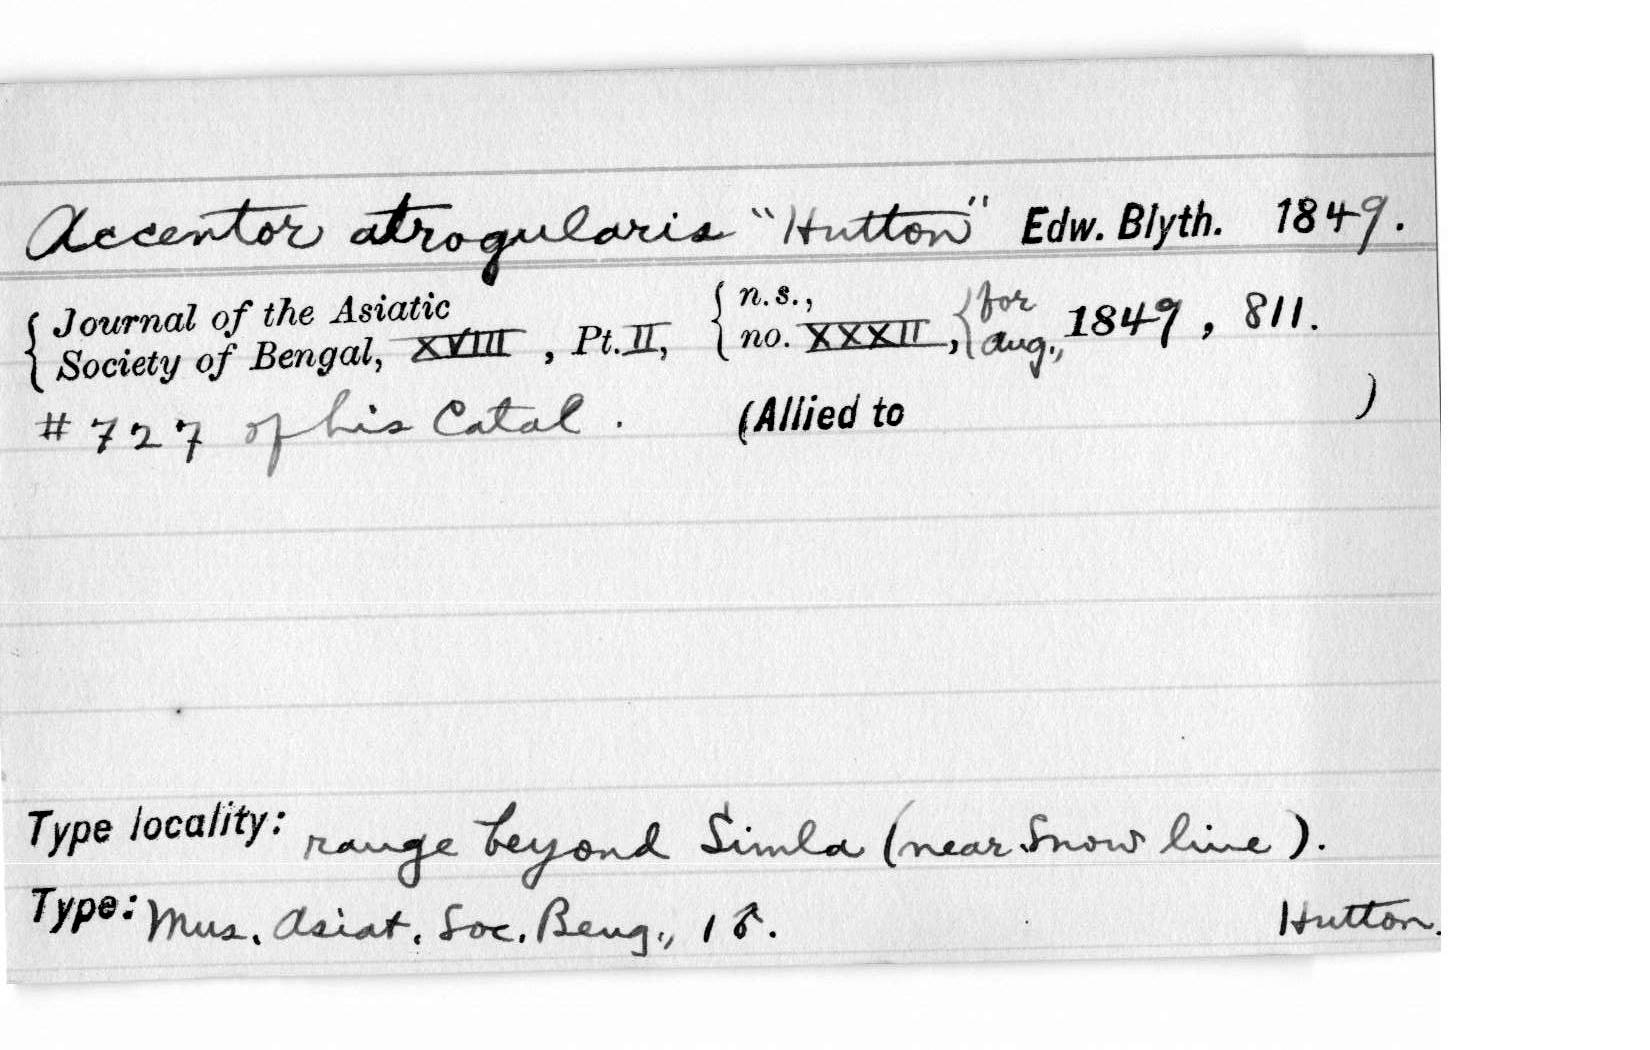 Accentor atrogularis "Hutton" Edw. Blyth. 1849.
{ Journal of the Asiatic { n.s., { for
Society of Bengal, XVIII, Pt. II, no. XXXII, Aug., 1849, 811.
# 727 of his Catal. (Allied to )
Type locality: range beyond Simla (near Snow line).
Type: Mus. Asiat. Soc. Beng., 1 ♂. Hutton.